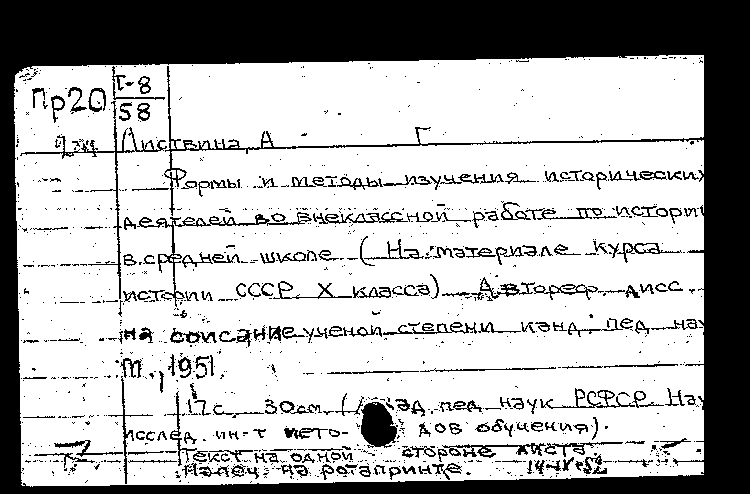 Пр20 I-8
58
Листвина, А Г
Формы и методы изучения исторических
деятелей во внеклассной работе по истори
в средней школе ( На материале курса
истории СССР X класса) Автореф. дисс.
на соискание ученой степени канд. пед. нау
М., 1951.
17 с. 30см. (Акад. пед. наук РСФСР. Нау
исслед. ин-т мето- дов обучения).
Текст на одной стороне листа
Напеч. на ротапринте.